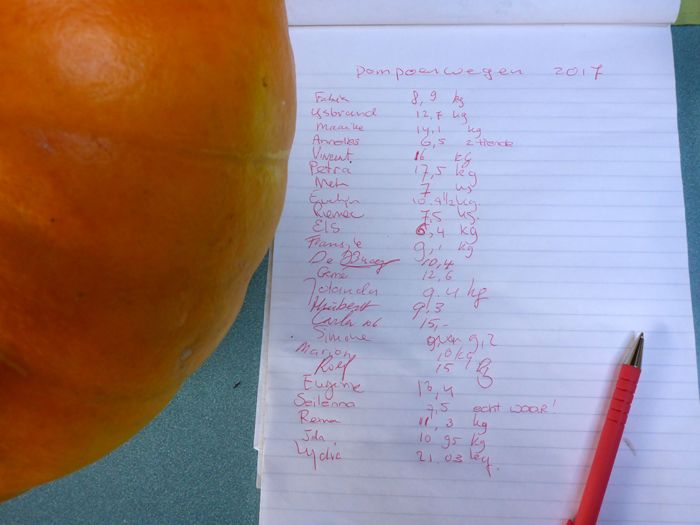 pompoenwegen 2017
Fabian 8,9 kg
IJsbrand 12,7 kg
Maaike 14,1 kg
Annelies 6,5
Vincent 16 kg
Petra 17,5 kg
7
Evelijn 10.9½ kg.
7,5 kg.
ELS 6,4 kg
Fransje 9,1 kg
De 10,4
12,6
Jolanda 9.4 kg
Huibert 9.3
Carla 15,-
Simone 9,2
Marjon 10 kg
Rolf 15 kg
Eugenie 13,4
7,5 echt waar!
11,3 kg
Ida 10 95 kg
Lydia 21.03 kg.